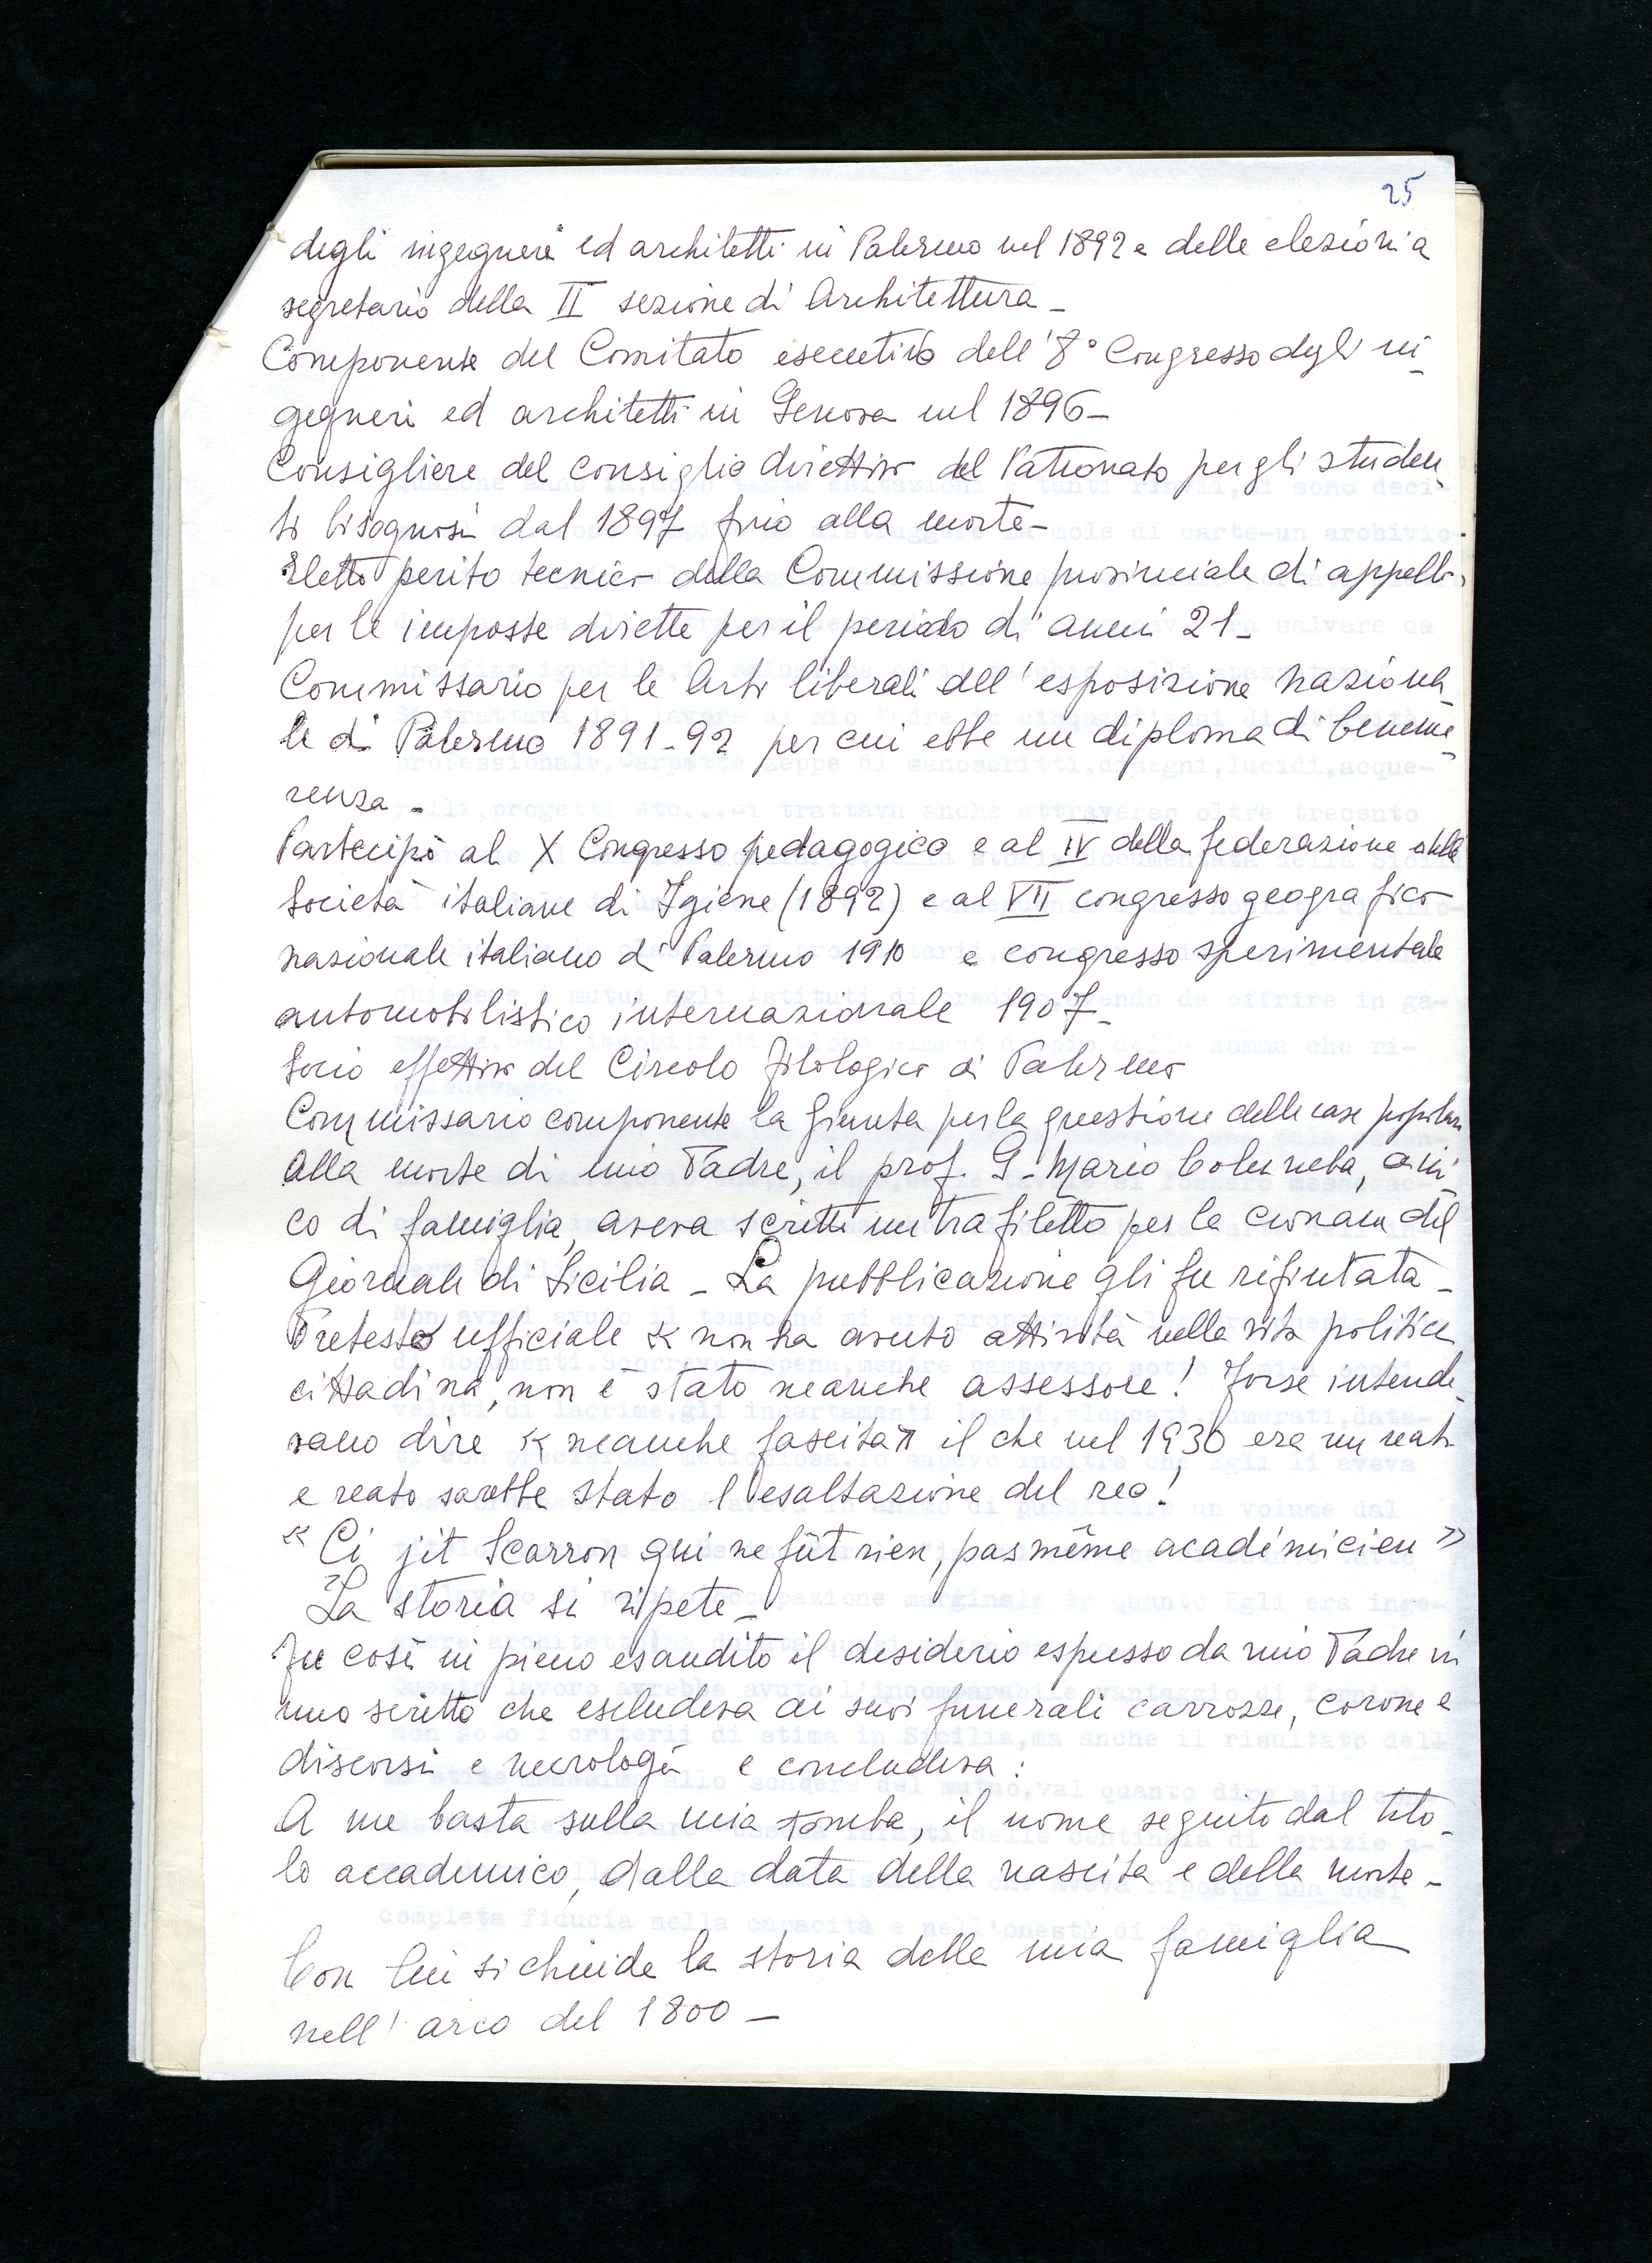 25
degli ingegneri ed architetti in Palermo nel 1892 e delle elezioni a
segretario della II sezione di Architettura -
Componente del Comitato esecutivo dell'8° Congresso degli in-
gegneri ed architetti in Genova nel 1896 -
Consigliere del consiglio direttivo del Patronato per gli studen-
ti bisognosi dal 1897 fino alla morte -
Eletto perito tecnico della Commissione provinciale di appello
per le imposte dirette per il periodo di anni 21 -
Commissario per le Arti liberali dell'esposizione naziona-
le di Palermo 1891-92 per cui ebbe un diploma di beneme-
renza -
Partecipò al X Congresso pedagogico e al IV della federazione delle
Società italiane di Igiene (1892) e al VII congresso geografico
nazionale italiano di Palermo 1910 e congresso sperimentale
automobilistico internazionale 1907 -
Socio effettivo del Circolo filologico di Palermo
Commissario componente la Giunta per la questione delle case popolari
Alla morte di mio Padre, il prof. G. Mario Columba, ami-
co di famiglia, aveva scritti un trafiletto per la cronaca del
Giornale di Sicilia - La pubblicazione gli fu rifiutata -
Pretesto ufficiale « non ha avuto attività nella vita politica
cittadina, non è stato neanche assessore! Forse intende-
vano dire « neanche fascita » il che nel 1930 era un reato
e reato sarebbe stato l'esaltazione del reo!
« Ci jît Scarron qui ne fût rien, pas même acadèmicien »
La storia si ripete -
Fu così in pieno esaudito il desiderio espresso da mio Padre in
uno scritto che escludeva ai suoi funerali carrozze, corone e
discorsi e necrologi e concludeva:
A me basta sulla mia tomba, il nome seguito dal tito-
lo accademico, dalla data della nascita e della morte -
Con lui si chiude la storia della mia famiglia
nell'arco del 1800 -